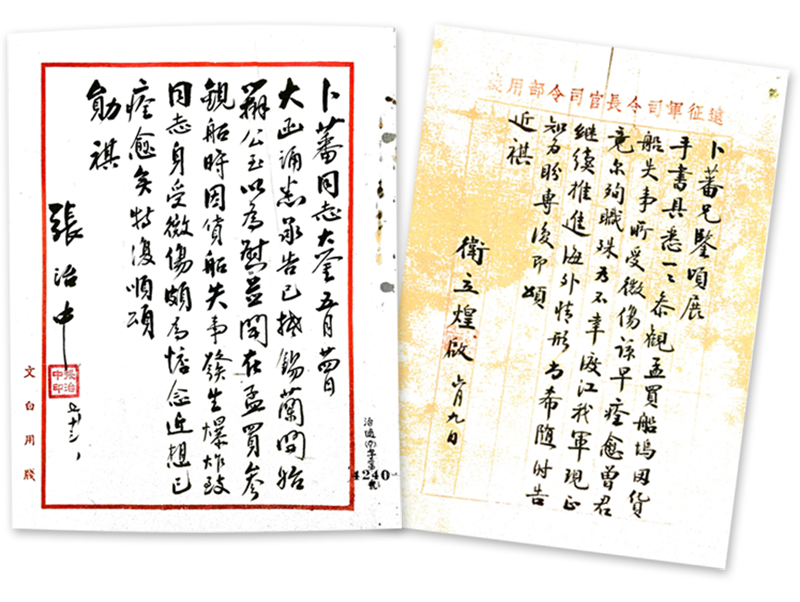 卜蕃同志大鑒五月廿四日
大函誦悉承告已抵錫蘭開始
辦公至以為慰並聞在孟買參
觀船時因貨船失事發生爆炸致
同志身受微傷頗為懸念近想已
痊愈矣特復順頌
勛祺
張治中
張治中印
文白用牋
4240號
遠征軍司令長官司令部用箋
卜蕃兄鑒頃展
手書具悉一一參觀孟買船塢因貨
船失事所受微傷諒早痊愈曾君
竟爾殉職殊為不幸渡江我軍現正
繼續推進海外情形尚希隨時告
知為盼專復即頌
近祺
衛立煌啟 月九日